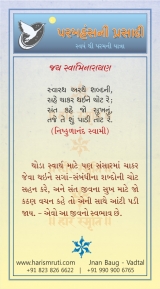 પરમહંસની પ્રસાદી
સ્વથી પરની યાત્રા
જય સ્વામિનારાયણ
સ્વારથ અરથે શબ્દની,
સહે ચાકર થઈને ચોટ રે;
સંત કહે જો સુખનું,
તજે તે શું પાડી તોટ રે.
(નિષ્કુળાનંદ સ્વામી)
થોડા સ્વાર્થ માટે પણ સંસારમાં ચાકર
જેવા થઈને સગાં-સંબંધીના શબ્દોની ચોટ
સહન કરે, અને સંત જીવના સુખ માટે જો
કઠણ વચન કહે તો એની સાથે આંટી પડી
જાય. - એવો આ જીવનો સ્વભાવ છે.
www.harismruti.com
+91 823 826 6622
Jnan Baug - Vadtal
+91 990 900 6765